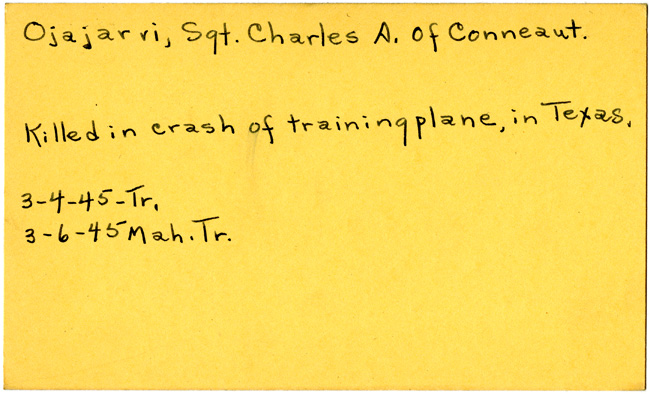 Ojajarvi, Sgt. Charles A. of Conneaut.
Killed in crash of training plane, in Texas.
3-4-45-Tr.
3-6-45 Mah. Tr.